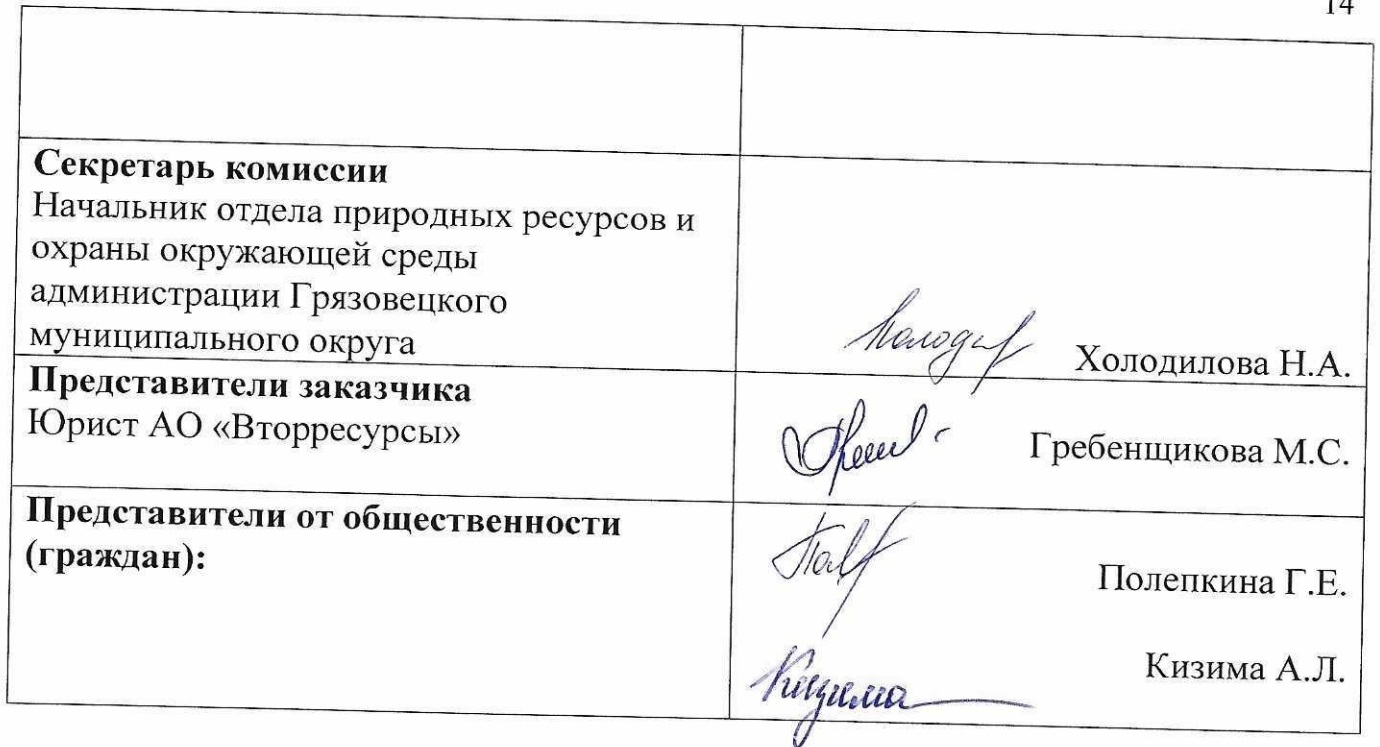 14
Секретарь комиссии
Начальник отдела природных ресурсов и
охраны окружающей среды
администрации Грязовецкого
муниципального округа
Холодилова Н.А.
Представители заказчика
Юрист АО «Вторресурсы»
Гребенщикова М.С.
Представители от общественности
(граждан):
Полепкина Г.Е.
Кизима А.Л.
Кизима